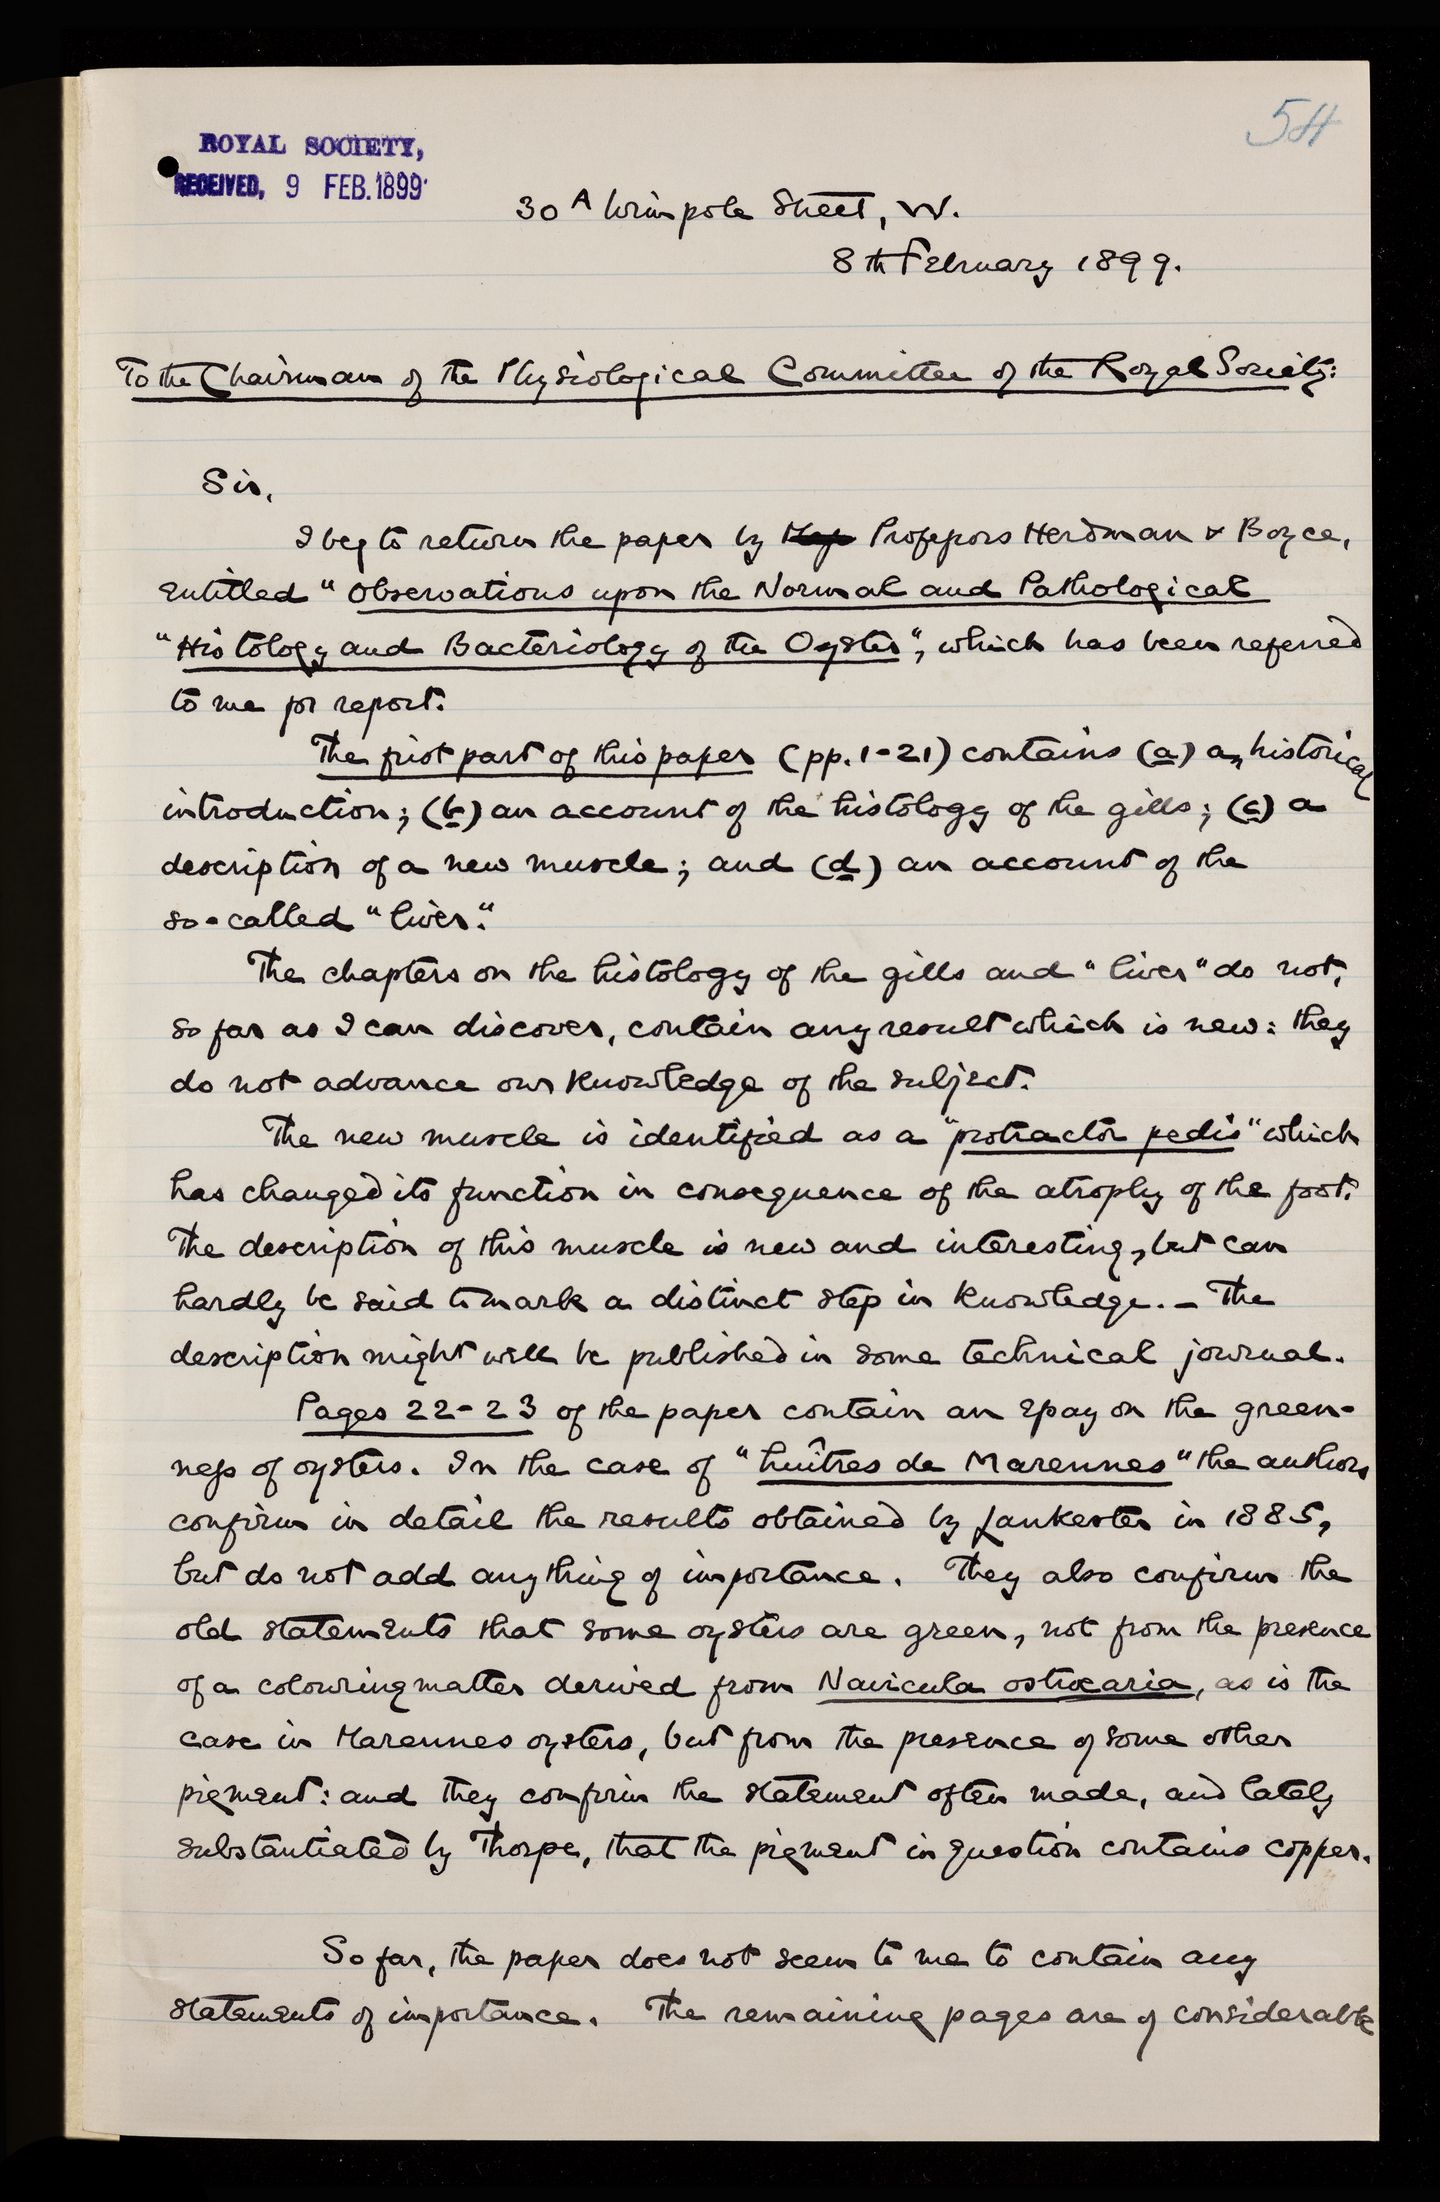 54
ROYAL SOCIETY,
RECEIVED, 9 FEB. 1899
30A Wimpole Street, W.
8th February 1899.
To the Chairman of the Physiological Committee of the Royal Society:
Sir,
I beg to return the paper by Professors Herdman & Boyce,
entitled "Observations upon the Normal and Pathological
"Histology and Bacteriology of the Oyster", which has been referred
to me for report.
The first part of this paper (pp. 1-21) contains (a) an historical
introduction; (b) an account of the histology of the gills; (c) a
description of a new muscle; and (d) an account of the
so-called "liver."
The chapters on the histology of the gills and "liver" do not,
so far as I can discover, contain any result which is new: they
do not advance our knowledge of the subject.
The new muscle is identified as a "protractor pedis" which
has changed its function in consequence of the atrophy of the foot.
The description of this muscle is new and interesting, but can
hardly be said to mark a distinct step in knowledge. – The
description might well be published in some technical journal.
Pages 22-23 of the paper contain an essay on the green-
ness of oysters. In the case of "huîtres de Marennes" the authors
confirm in detail the results obtained by Lankester in 1885,
but do not add anything of importance. They also confirm the
old statements that some oysters are green, not from the presence
of a colouring matter derived from Navicula ostrearia, as is the
case in Marennes oysters, but from the presence of some other
pigment: and they confirm the statement often made, and lately
substantiated by Thorpe, that the pigment in question contains copper.
So far, the paper does not seem to me to contain any
statements of importance. The remaining pages are of considerable